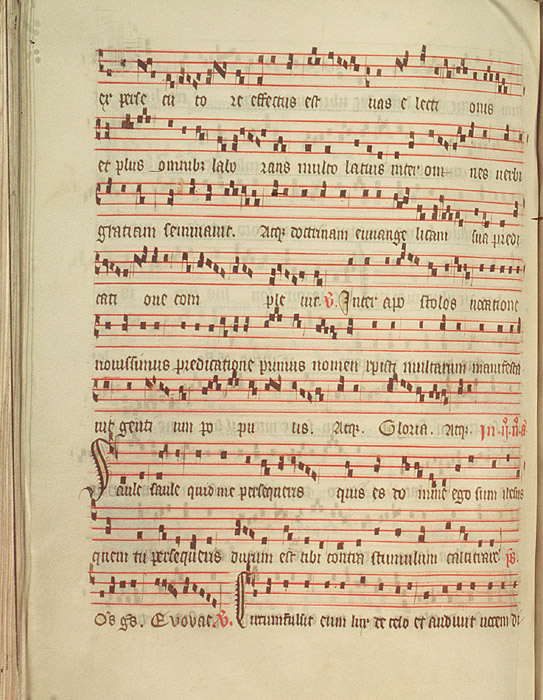 ex perse cu to re effectus est uas e lecti onis
et plus omnibus labo rans multo latius inter om nes uerbi
graciam seminauit. Atque doctrinam euuange licam sua predi
cati one com ple uit. V. Inter apo stolos uocatione
nouissimus predicatione primus nomen xpisti multarum manifesta
uit genti um po pu lis. Atque. Gloria. Atque. In
Saule saule quid me persequeris quis es do mine ego sum iesus
quem tu persequeris durum est tibi contra stimulum calcitrare ps.
E vovae. V. Circumfulsit eum lux de celo et audiuit uocem di